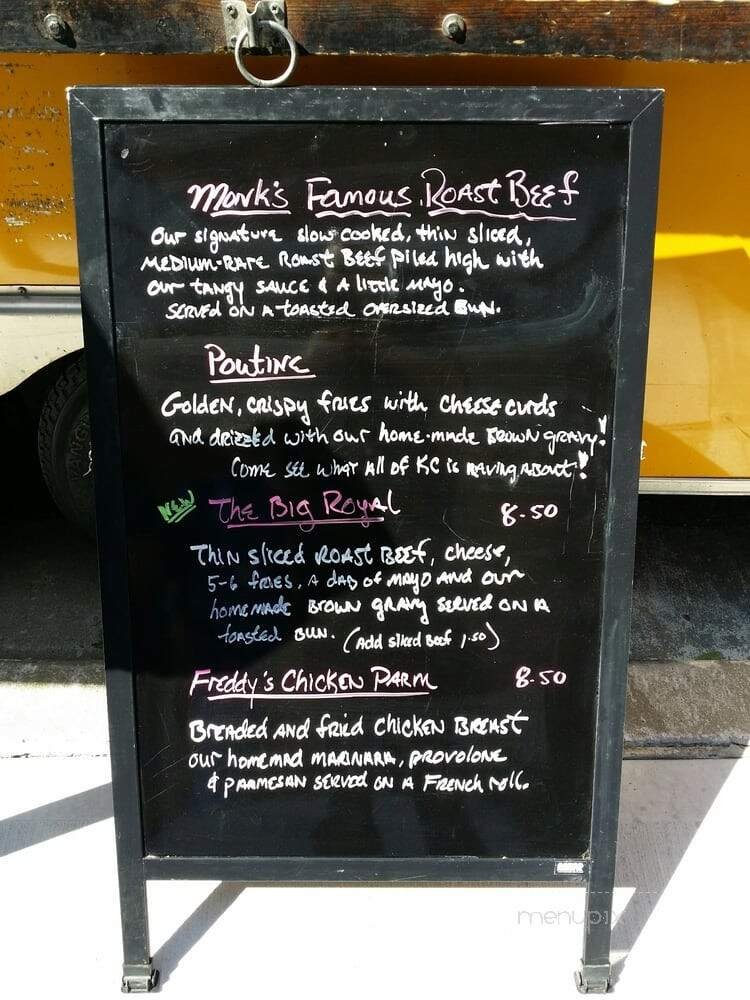 Monk's Famous Roast Beef
Our signature slow cooked, thin sliced,
medium-rare Roast Beef piled high with
our tangy sauce & a little mayo.
Served on a toasted oversized bun.
Poutine
Golden, crispy fries with cheese curds
and drizzled with our home-made brown gravy!
Come see what all of KC is raving about!
NEW The Big Royal 8.50
Thin sliced roast beef, cheese,
5-6 fries, a dab of mayo and our
homemade brown gravy served on a
toasted bun. (Add sliced beef 1.50)
Freddy's Chicken Parm 8.50
Breaded and fried chicken breast
our homemad marinara, provolone
& parmesan served on a French roll.
menupix